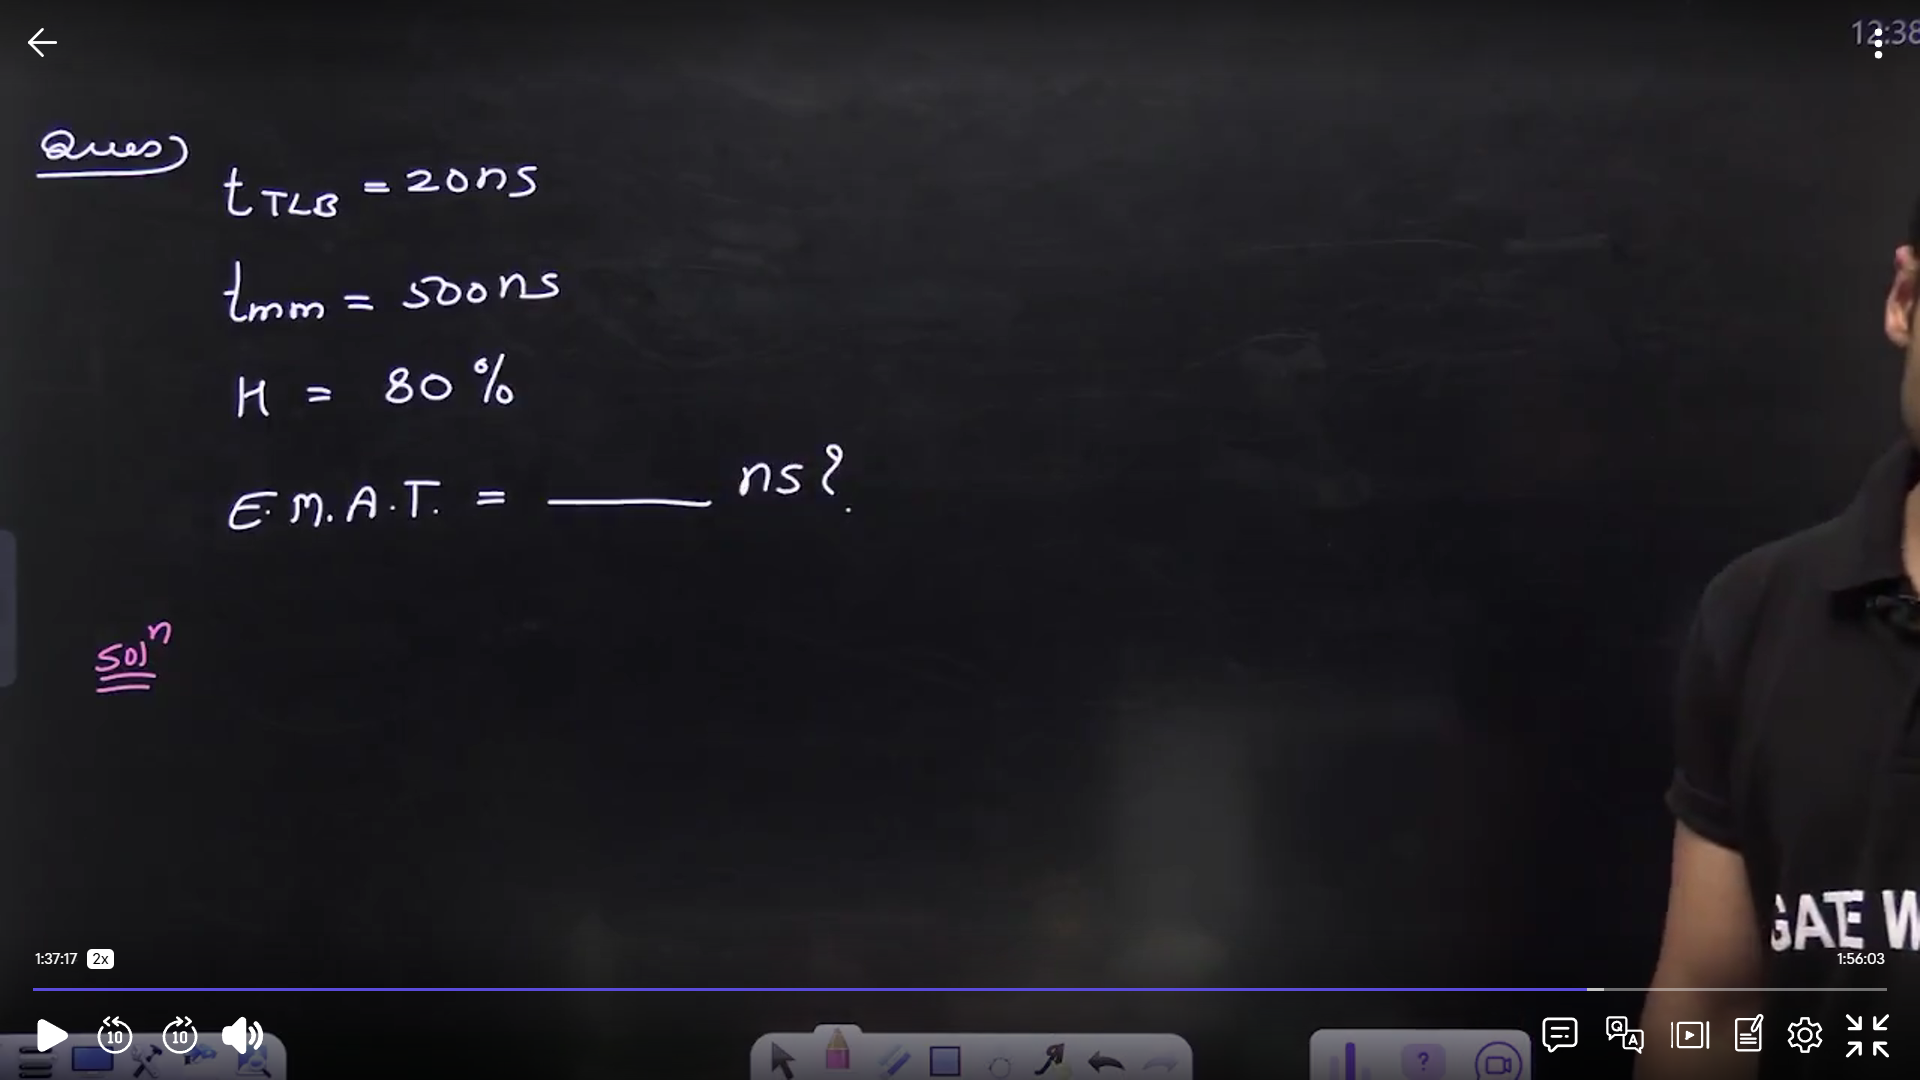 12:38
Ques)
tTLB = 20ns
tmm = 500ns
H = 80%
E.M.A.T. = ______ ns?
Solⁿ
GATE W
1:37:17 2x
1:56:03
10 10